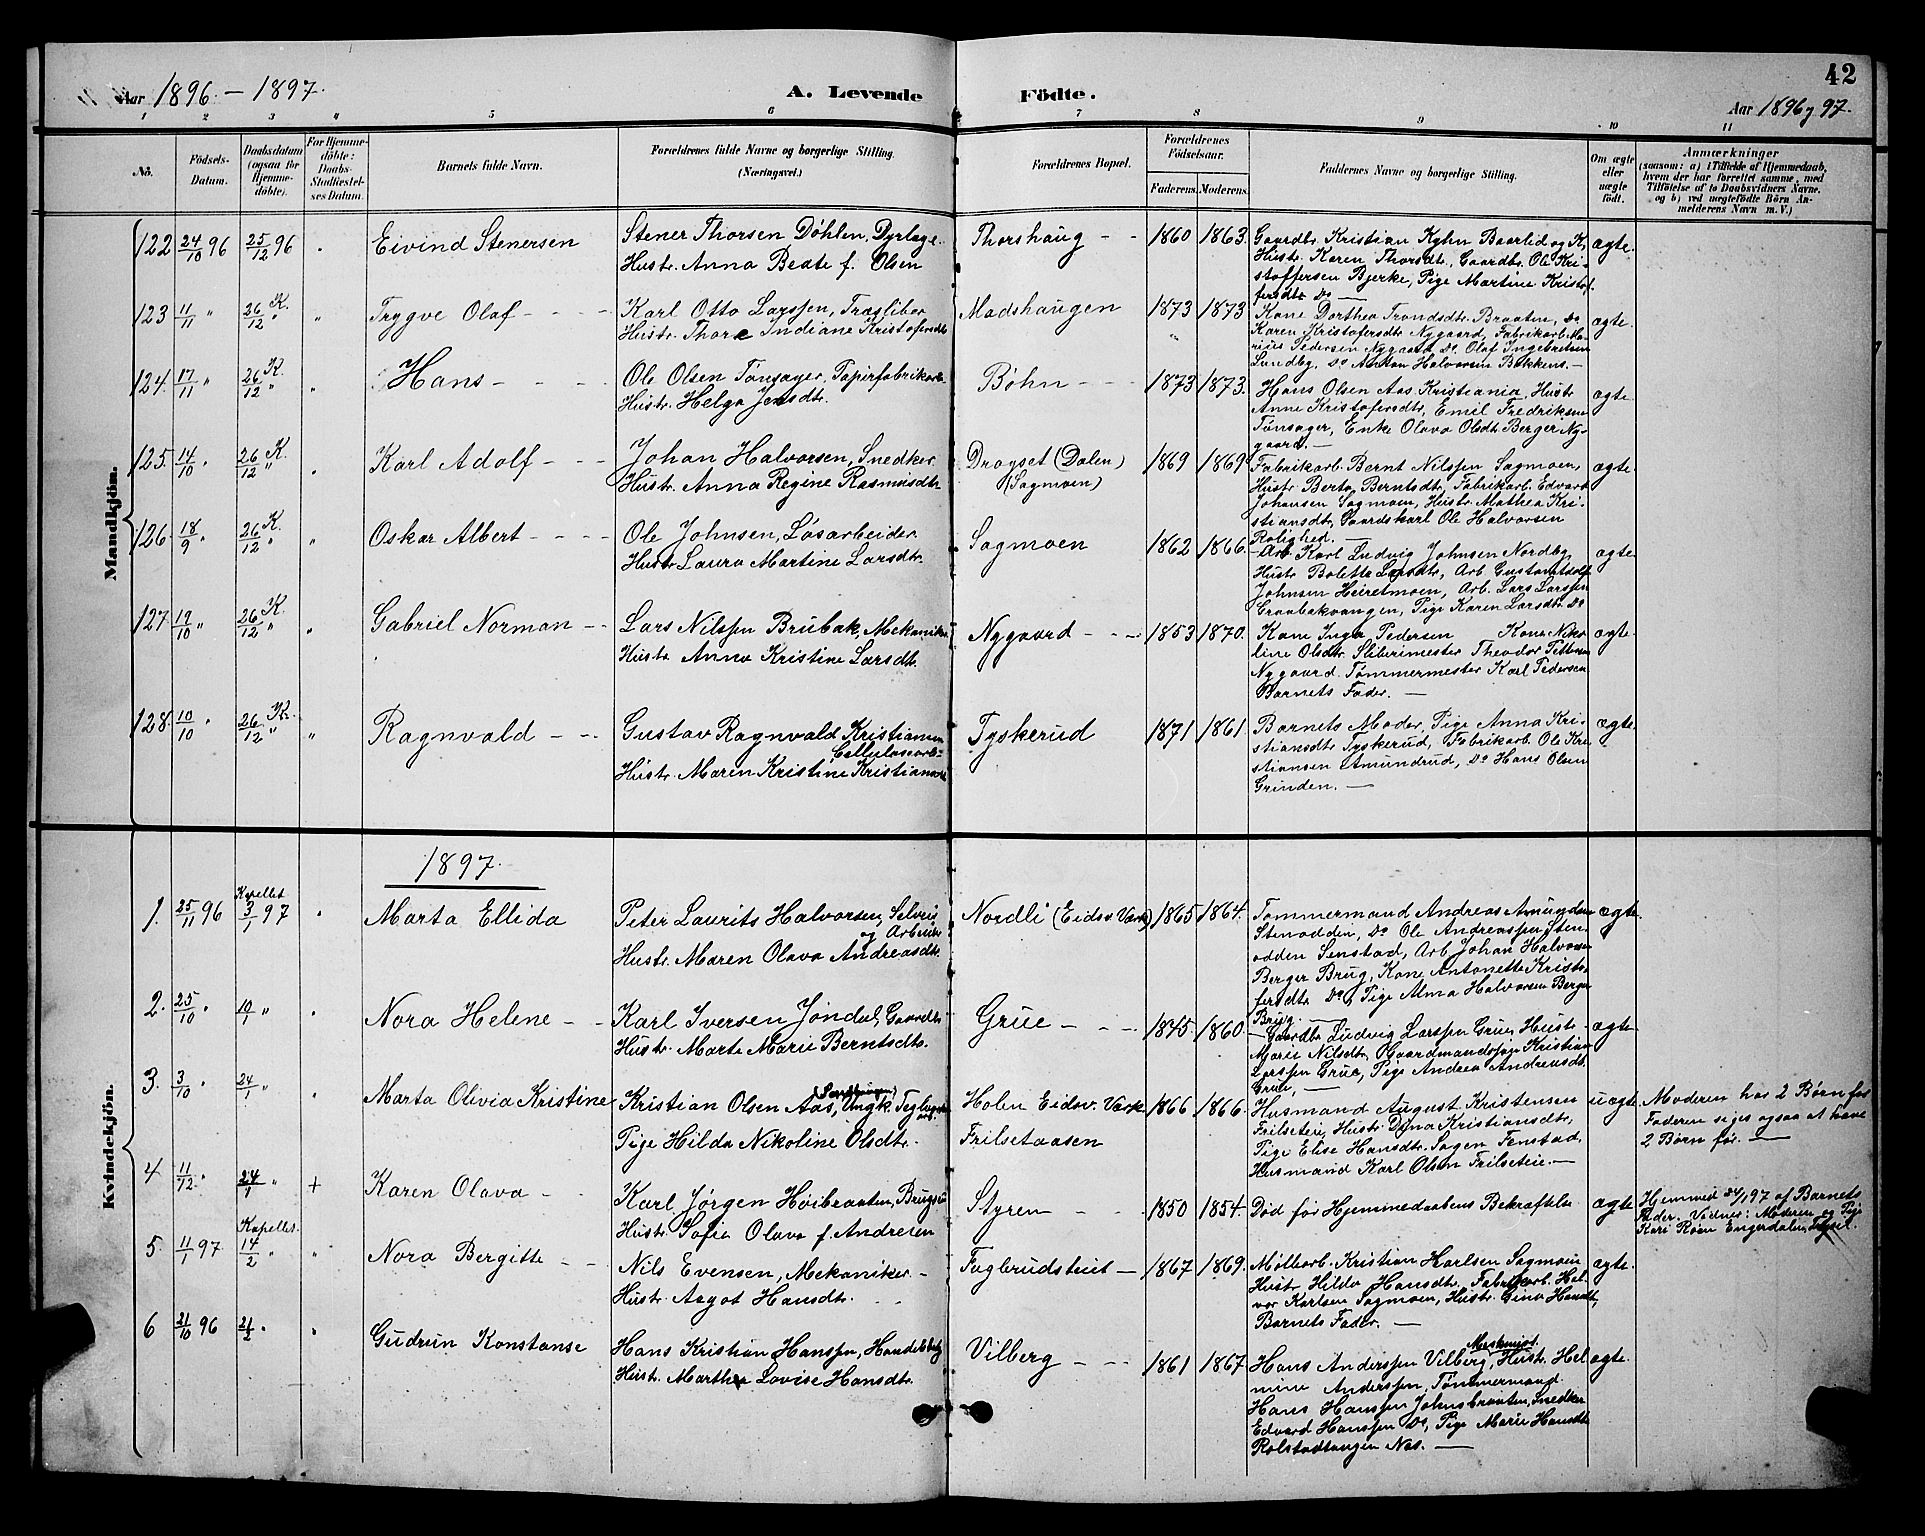 Aar 1896 - 1897. A. Levende Födte. 42
Aar 1896 & 97.
1 2 3 4 5 6 7 8 9 10 11
No.
Födsels-Datum.
Daabsdatum (ogsaa for Hjemmedöbte).
For Hjemmedöbte: Daabs-Stadfæstelses Datum.
Barnets fulde Navn.
Forældrenes fulde Navne og borgerlige Stilling. (Næringsvei.)
Forældrenes Bopæl.
Forældrenes Födselsaar.
Faderens. Moderens.
Faddernes Navne og borgerlige Stilling.
Om ægte eller uægte födt.
Anmærkninger
(saasom: a) i Tilfælde af Hjemmedaab,
hvem der har forrettet samme, med
Tilföielse af to Daabsvidners Navne.
og b) ved uægtefödte Börn An-
melderens Navn m. V.)
Mandkjön.
122 24/10 96 25/12 96 " Eivind Stenersen
Stener Thorsen Döhlen, Dyrlæge.
Hustr. Anna Beate f. Olsen
Thorshaug - - 1860 1863.
Gaardbr. Kristian Kyhn Baarlid og K,
Hustr. Karen Thorsdtr, Gaardbr. Ole Kri-
stoffersen Bjerke, Pige Martine Kristof-
fersdtr Do —
ægte.
123 11/11 " 26/12 K. " " Trygve Olaf - - -
Karl Otto Larssen, Træsliber
Hustr. Thora Indiane Kristofersdtr
Madshaugen 1873 1873
Kone Dorthea Trondsdtr. Braaten, Do
Karen Kristofersdtr Nygaard, Fabrikarb. Ma-
rius Pedersen Nygaard Do. Olaf Ingebretsen
Lundby, Do Anton Halvorsen Bakken. —
ægte.
124. 17/11 " 26/12 K. " Hans - - - -
Ole Olsen Tönsager, Papirfabrikarb.
Hustr. Helga Jensdtr.
Böhn - - - 1873 1873.
Hans Olsen Aas Kristiania, Hustr
Anne Kristofersdtr, Emil Fredriksen
Tönsager, Enke Olava Olsdtr. Berger Ny-
gaard. —
ægte.
125. 14/10 " 26/12 K. " " Karl Adolf - - -
Johan Halvorsen, Snedker
Hustr. Anna Regine Rasmusdtr
Drogset (Dalen)
(Sagmoen)
1869 1869
Fabrikarb. Bernt Nilssen Sagmoen,
Hustr Berta Berntsdtr, Fabrikarb. Edvard
Johansen Sagmoen, Hustr. Mathea Kri-
stiansdtr, Gaardskarl Ole Halvorsen
Rolighed. —
ægte.
126. 18/9 " 26/12 K. " " Oskar Albert - - - -
Ole Johnsen, Lösarbeider
Hustr Laura Martine Larsdtr.
Sagmoen 1862 1866.
Arb. Karl Ludvig Johnsen Nordby
Hustr Bolette Larsdtr, Arb. Gustav Adolf
Johnsen Heiretmoen, Arb. Lars Larssen
Graabakvangen, Pige Karen Larsdtr Do
ægte
127. 19/10 " 26/12 K. " " Gabriel Norman - -
Lars Nilssen Brubak, Mekaniker
Hustr Anna Kristine Larsdtr.
Nygaard - - - 1853 1870.
Kone Inga Pedersen Kone Niko-
line Olsdtr. Sliberimester Theodor
Nygaard. Tömmermester Karl Pedersen
Barnets Fader. —
ægte.
128. 10/10 " 26/12 K. " " Ragnvald - - -
Gustav Ragnvald Kristiansen
Cellulosearb.
Hustr. Maren Kristine Kristiansdtr
Tyskerud 1871 1861.
Barnets Moder, Pige Anna Kri-
stiansdtr Tyskerud, Fabrikarb. Ole Kri-
stiansen Amundrud, Do Hans Olsen
Grinden. —
ægte.
1897.
Kvindekjön.
1. 25/11 96 Kapellet 3/1 97 " Marta Ellida
Peter Laurits Halvorsen, Selveier
og Arbeider
Hustr. Maren Olava Andreasdtr.
Nordli (Eidsv. Værk) 1865 1864.
Tömmermand Andreas Amundsen
Stenodden, Do Ole Andreassen Sten-
odden Senstad, Arb. Johan Halvorsen
Berger Brug, Kone Antonette Kristo-
fersdtr Do, Pige Alma Halvorsen Berger
Brug. —
ægte
2. 25/10 " 10/1 " " Nora Helene - -
Karl Iversen Jöndal, Gaardbr.
Hustr. Marte Marie Berntsdtr.
Grue - - - 1875 1860.
Gaardbr Ludvig Larssen Grue, Hustr
Marie Nilsdtr, Gaardmandspige Kristian
Larssen Grue, Pige Andrea Andreasdtr
Grue, —
ægte
3. 3/10 " 24/1 " " Marta Olivia Kristine
Kristian Olsen Aas, Ungk. Teglverks
arb.
Pige Hilda Nikoline Olsdtr.
Holen Eidsv. Værk
Frilsetaasen
1866 1866.
Husmand August Kristensen
Frilseteie, Hustr Dina Kristiansdtr,
Pige Elise Hansdtr. Sagen Fenstad,
Husmand Karl Olsen Frilseteie. —
uægte
Moderen har 2 Börn för
Faderen siges ogsaa at have
2 Börn för. —
4 11/12 " 24/1 " + Karen Olava - -
Karl Jörgen Höibraaten, Brugs
Hustr. Sofie Olava f. Andresen
Styren - - 1850 1854.
Död för Hjemmedaabens Bekræftelse
ægte
Hjemmed 24/1 97 af Barnets
Fader. Vidner: Moderen og Pige
Kari Röen Engerdalen, Trysil.
5. 11/1 97. Kapellet. 14/2 " " Nora Bergitte - -
Nils Evensen, Mekaniker. -
Hustr. Aagot Hansdtr. - -
Fagbrudsteiet - 1867 1869.
Möllearb. Kristian Karlsen Sagmoen
Hustr. Hilda Hansdtr, Fabrikarb. Hal-
vor Karlsen Sagmoen, Hustr. Gina Hansdtr,
Barnets Fader. —
ægte.
6 21/10 96 21/2 " " Gudrun Konstanse
Hans Kristian Hanssen, Handelsbetj
Hustr. Marthea Lovise Hansdtr.
Vilberg - - - 1861 1867
Hans Anderssen Vilberg, Hustr. Hel-
mine Anderssen, Tömmermand
Hans Hanssen Johnsbraaten, Snedker
Edvard Hanssen Do, Pige Marie Hansdtr
Rolstadtangen Nes. —
ægte.